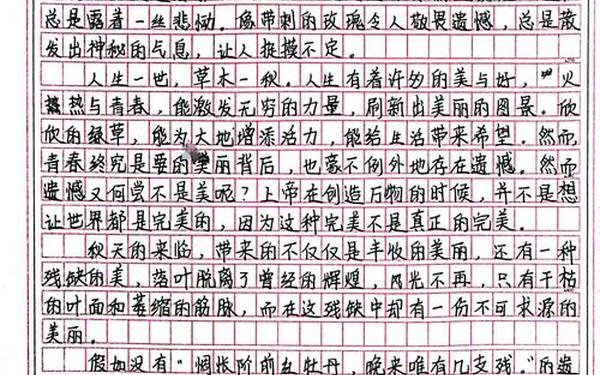 总是露着一丝悲恸。像带刺的玫瑰令人敬畏遗憾,总是散
发出神秘的气息,让人捉摸不定。
人生一世,草木一秋。人生有着许多的美与好,"火
热与青春,能激发无穷的力量,刷新出美丽的图景。欣
欣的绿草,能为大地增添活力,能给生活带来希望。然而
青春终究是要的美丽背后,也毫不例外地存在遗憾。然而
遗憾又何尝不是美呢?上帝在创造万物的时候,并不是想
让世界都是完美的,因为这种完美不是真正的完美。
秋天的来临,带来的不仅仅是丰收的美丽,还有一种
残缺的美,落叶脱离了曾经的辉煌,风光不再,只有干枯
的叶面和萎缩的筋脉,而在这残缺中却有一份不可求源的
美丽。
假如没有"惆怅阶前红牡丹,晚来唯有几支残。"的遗